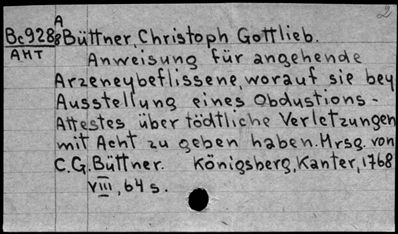 A
2
Bc9288 Büttner, Christoph Gottlieb.
AHT Anweisung für angehende
Arzeneybeflissene, worauf sie bey
Ausstellung eines Obdustions-
Attestes über tödtliche Verletzungen
mit Acht zu geben haben. Hrsg. von
C.G. Büttner. Königsberg, Kanter, 1768
VIII, 64 s.